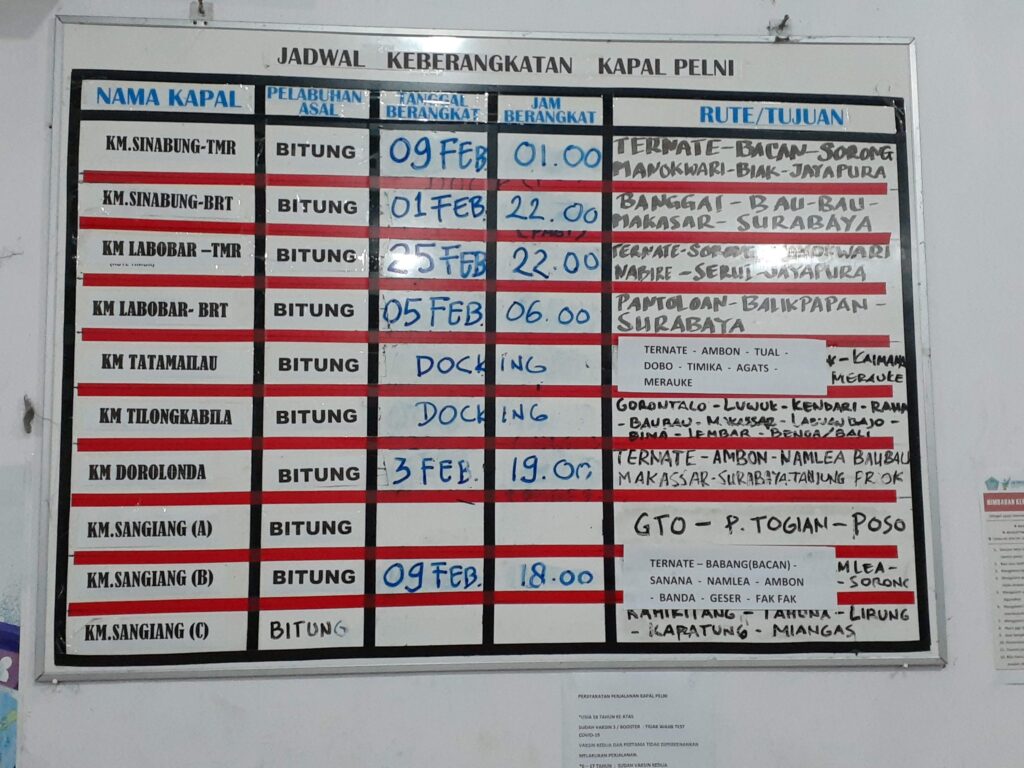 JADWAL KEBERANGKATAN KAPAL PELNI
NAMA KAPAL PELABUHAN ASAL TANGGAL BERANGKAT JAM BERANGKAT RUTE/TUJUAN
KM.SINABUNG-TMR BITUNG 09 FEB 01.00 TERNATE-BACAN-SORONG
MANOKWARI-BIAK-JAYAPURA
KM.SINABUNG-BRT BITUNG 01 FEB 22.00 BANGGAI-BAU-BAU-
MAKASAR-SURABAYA
KM LABOBAR –TMR BITUNG 25 FEB 22.00 TERNATE-SORONG
NABIRE-SERUI-JAYAPURA
KM LABOBAR- BRT BITUNG 05 FEB. 06.00 PANTOLOAN-BALIKPAPAN-
SURABAYA
KM TATAMAILAU BITUNG DOCKING TERNATE - AMBON - TUAL -
DOBO - TIMIKA - AGATS -
MERAUKE
- KAIMANA
MERAUKE
KM TILONGKABILA BITUNG DOCKING GORONTALO-LUWUK-KENDARI-RAHA
- BAUBAU - MAKASSAR - LABUANBAJO -
BIMA - LEMBAR - BENOA/BALI
KM DOROLONDA BITUNG 3 FEB. 19.00 TERNATE-AMBON-NAMLEA BAUBAU
MAKASSAR-SURABAYA-TANJUNG
KM.SANGIANG (A) BITUNG GTO - P. TOGIAN - POSO
KM.SANGIANG (B) BITUNG 09 FEB. 18.00 TERNATE - BABANG(BACAN) -
SANANA - NAMLEA - AMBON
- BANDA - GESER - FAK FAK
MLEA-
- SORONG
KM.SANGIANG (C) BITUNG TAHUNA - LIRUNG
- KARATUNG - MIANGAS
PERSYARATAN PERJALANAN KAPAL PELNI
*USIA 18 TAHUN KE ATAS
SUDAH VAKSIN 3 / BOOSTER : TIDAK WAJIB TEST
COVID-19
VAKSIN KEDUA DAN PERTAMA TIDAK DIPERKENANKAN
MELAKUKAN PERJALANAN.
*6 - 17 TAHUN : SUDAH VAKSIN KEDUA